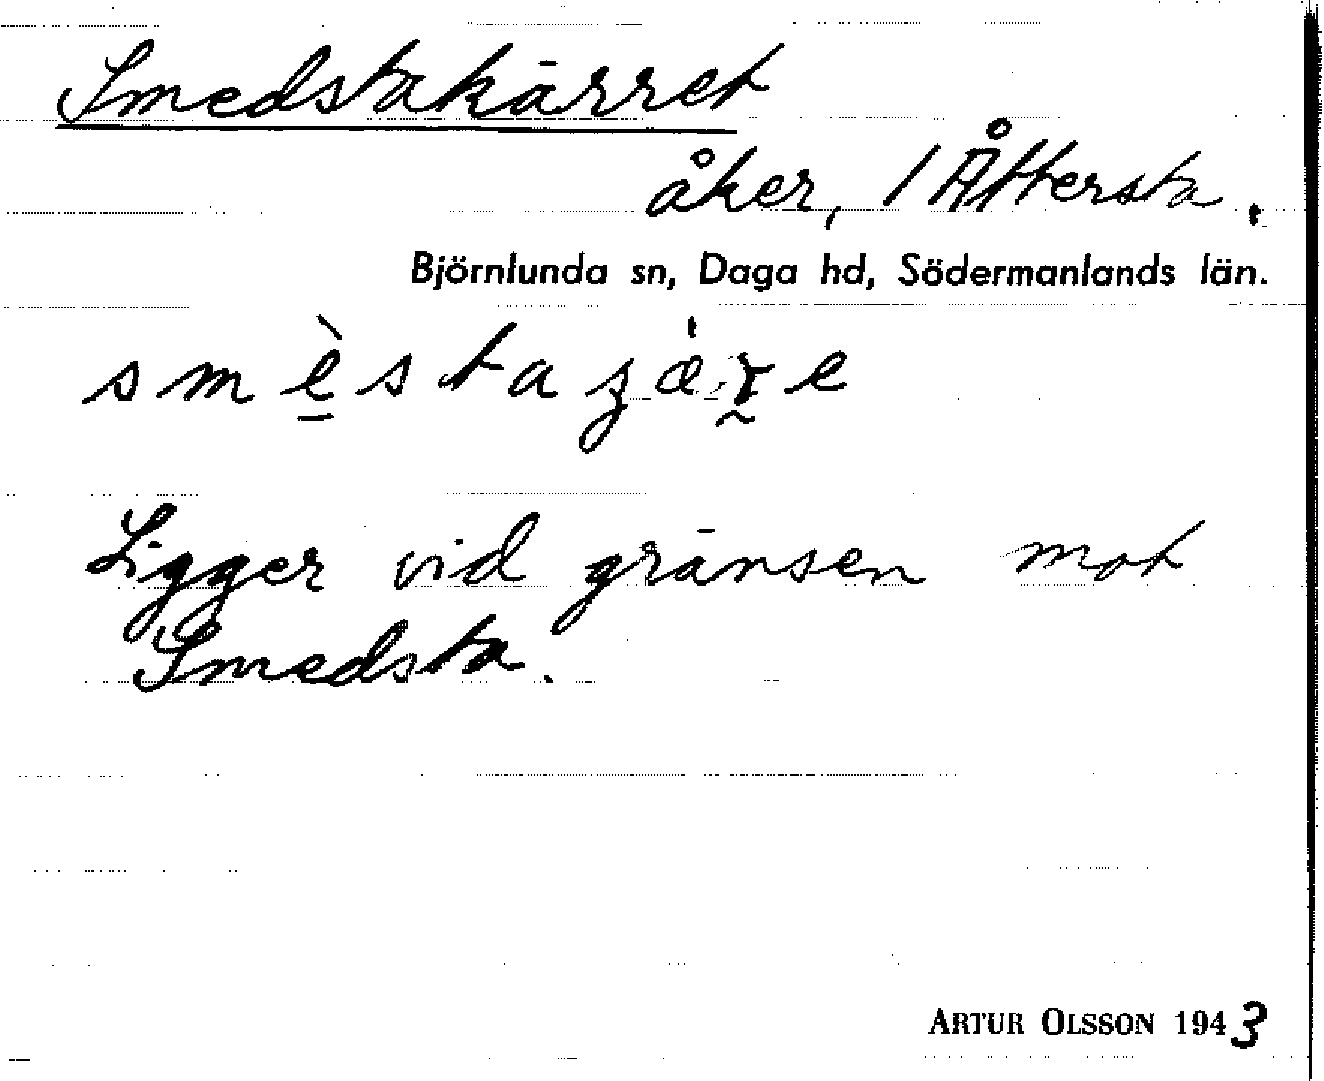 Smedstakärret
åker, / Åttersta.
Björnlunda sn, Daga hd, Södermanlands län.
Ligger vid gränsen mot
Smedsta.
ARTUR OLSSON 1943